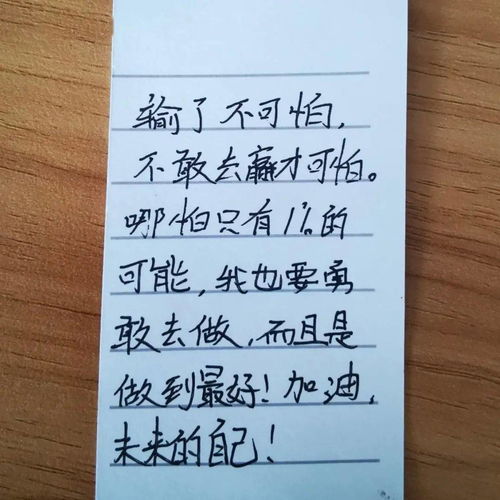 输了不可怕，
不敢去赢才可怕。
哪怕只有1%的
可能，我也要勇
敢去做，而且是
做到最好！加油，
未来的自己！